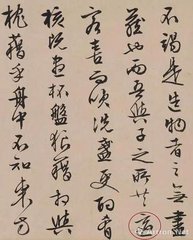 不竭是造物者之無盡
藏也而吾與子之所共食
客喜而笑洗盞更酌肴
核既盡杯盤狼藉相與
枕藉乎舟中不知東方